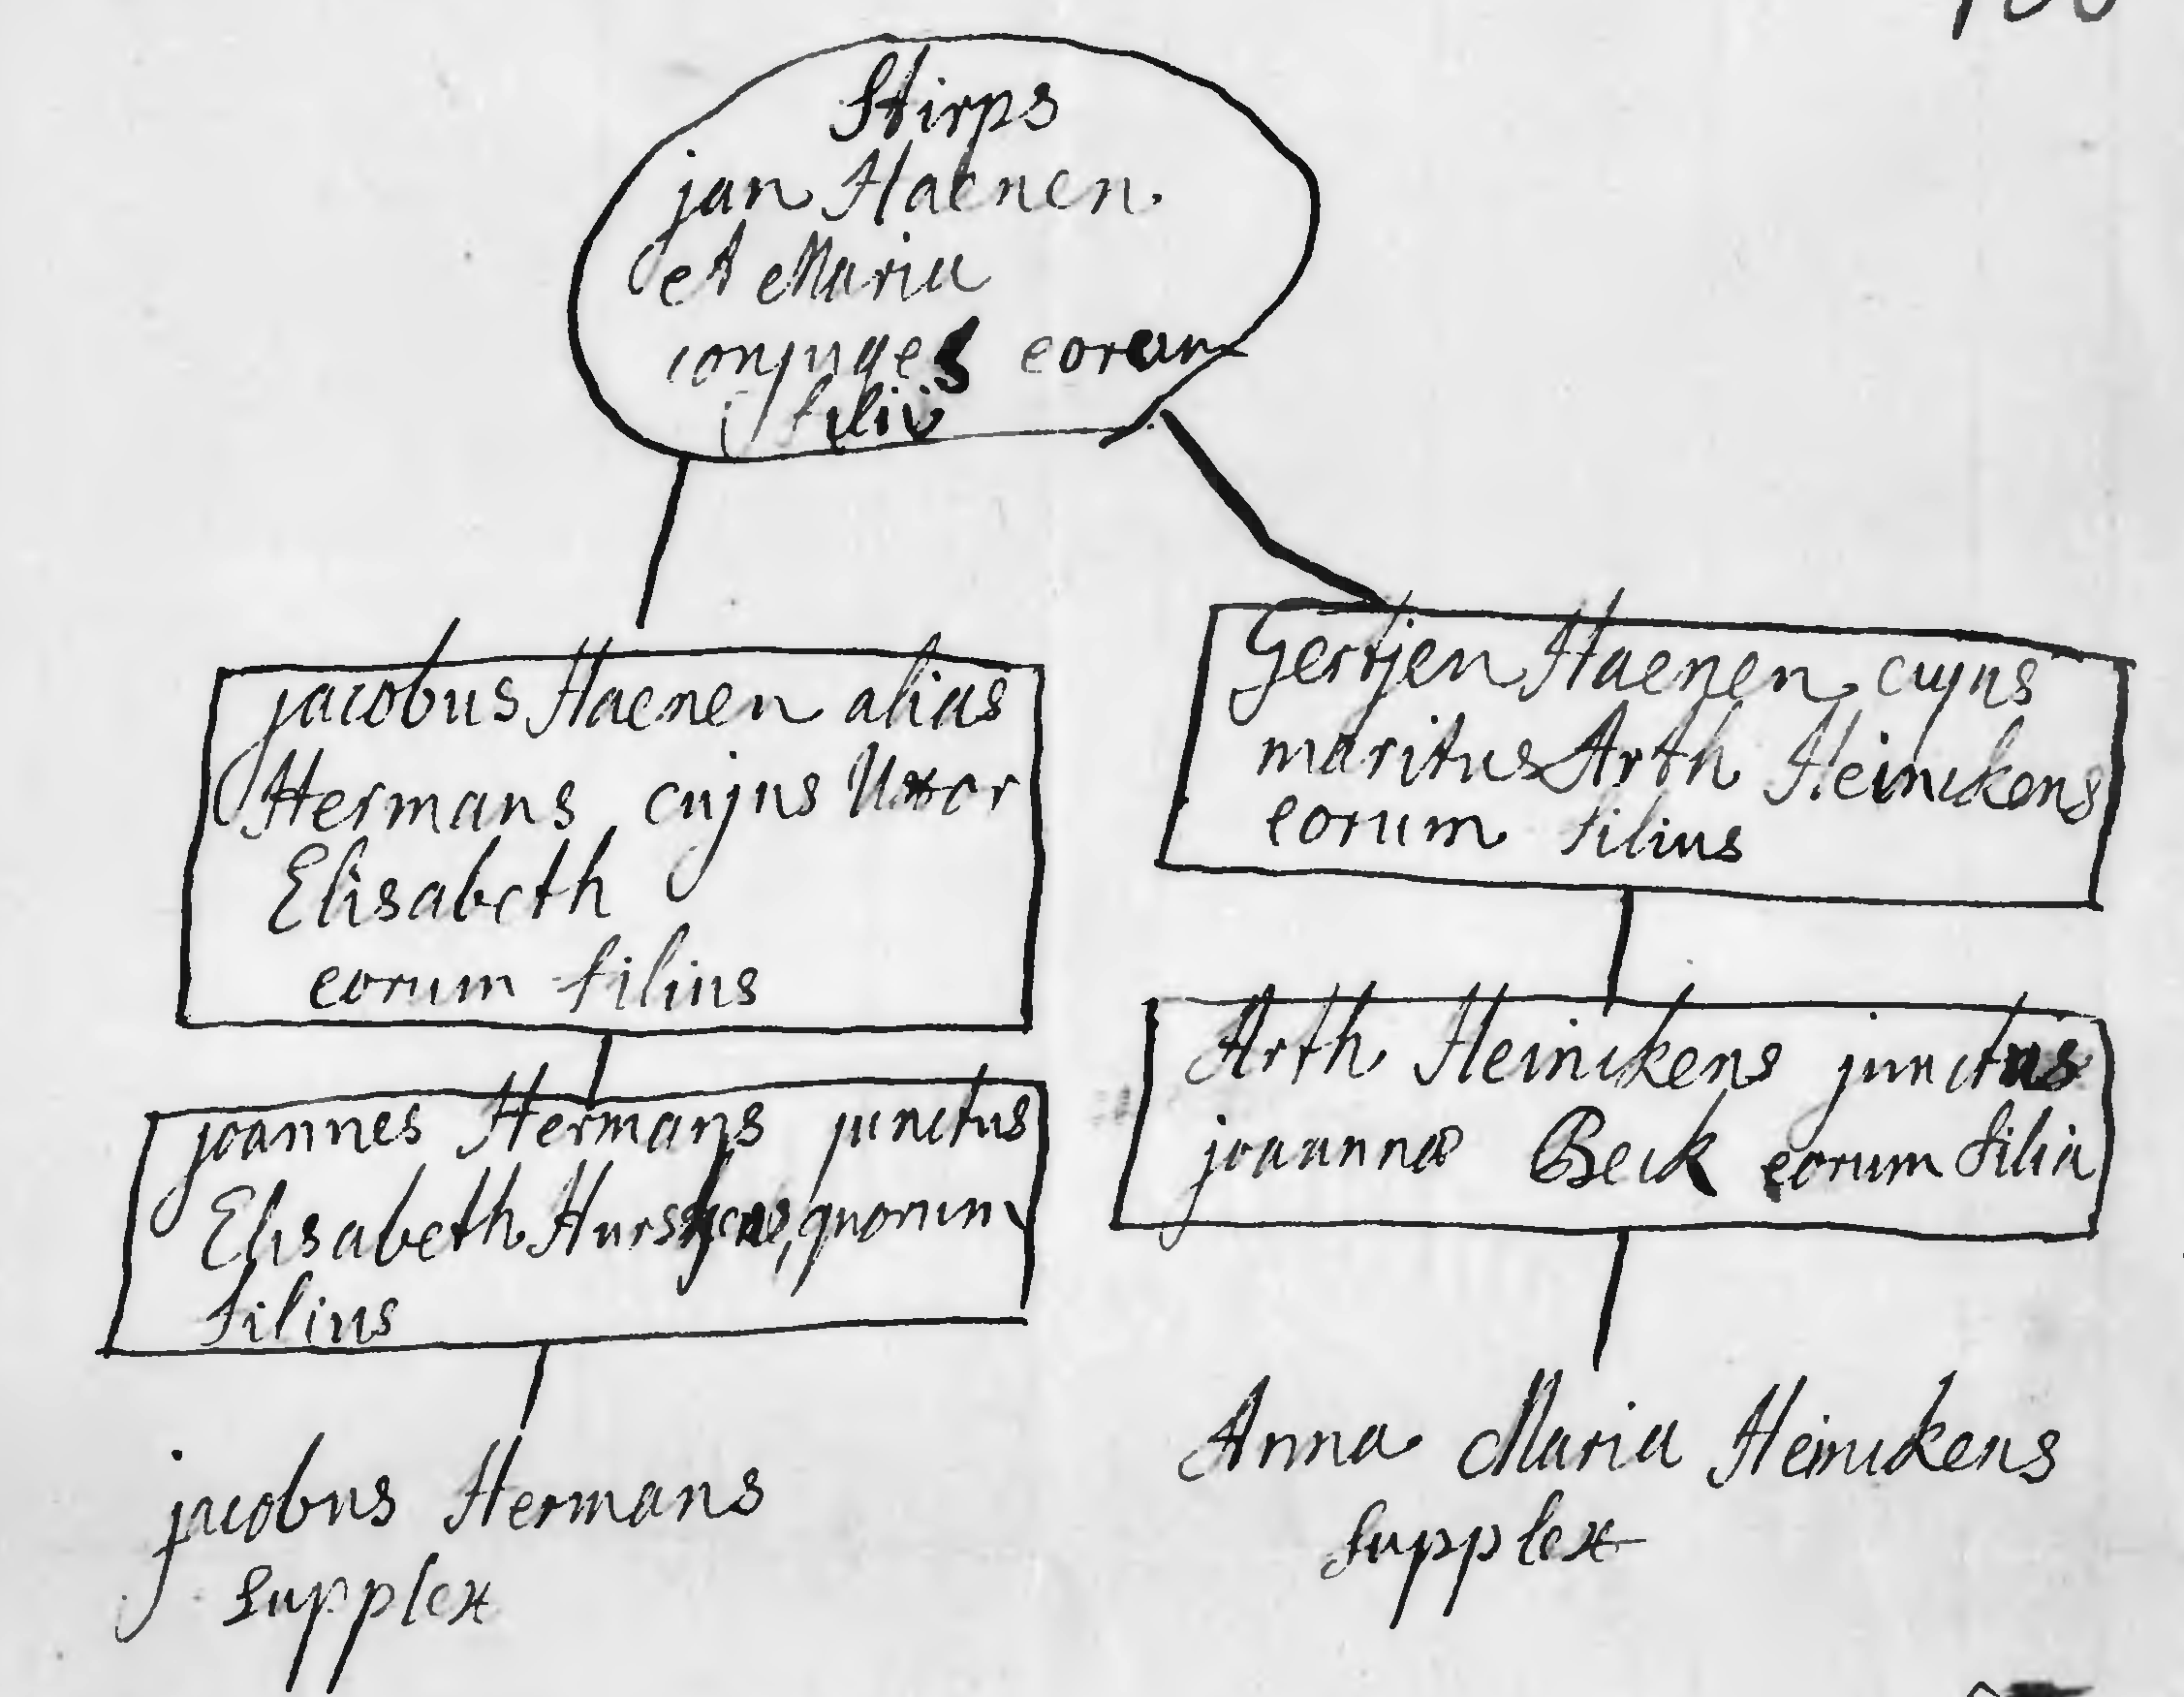 Stirps
jan Haenen.
et Maria
conjuges eorum
filii
jacobus Haenen alias
Hermans cujus Uxor
Elisabeth
eorum filius
joannes Hermans junctus
Elisabeth quorum
filius
jacobus Hermans
supplex
Gertjen Haenen cujus
maritus Arth Heinickens
eorum filius
Arth Heinickens junctus
joannae Beck eorum filia
Anna Maria Heinickens
supplex